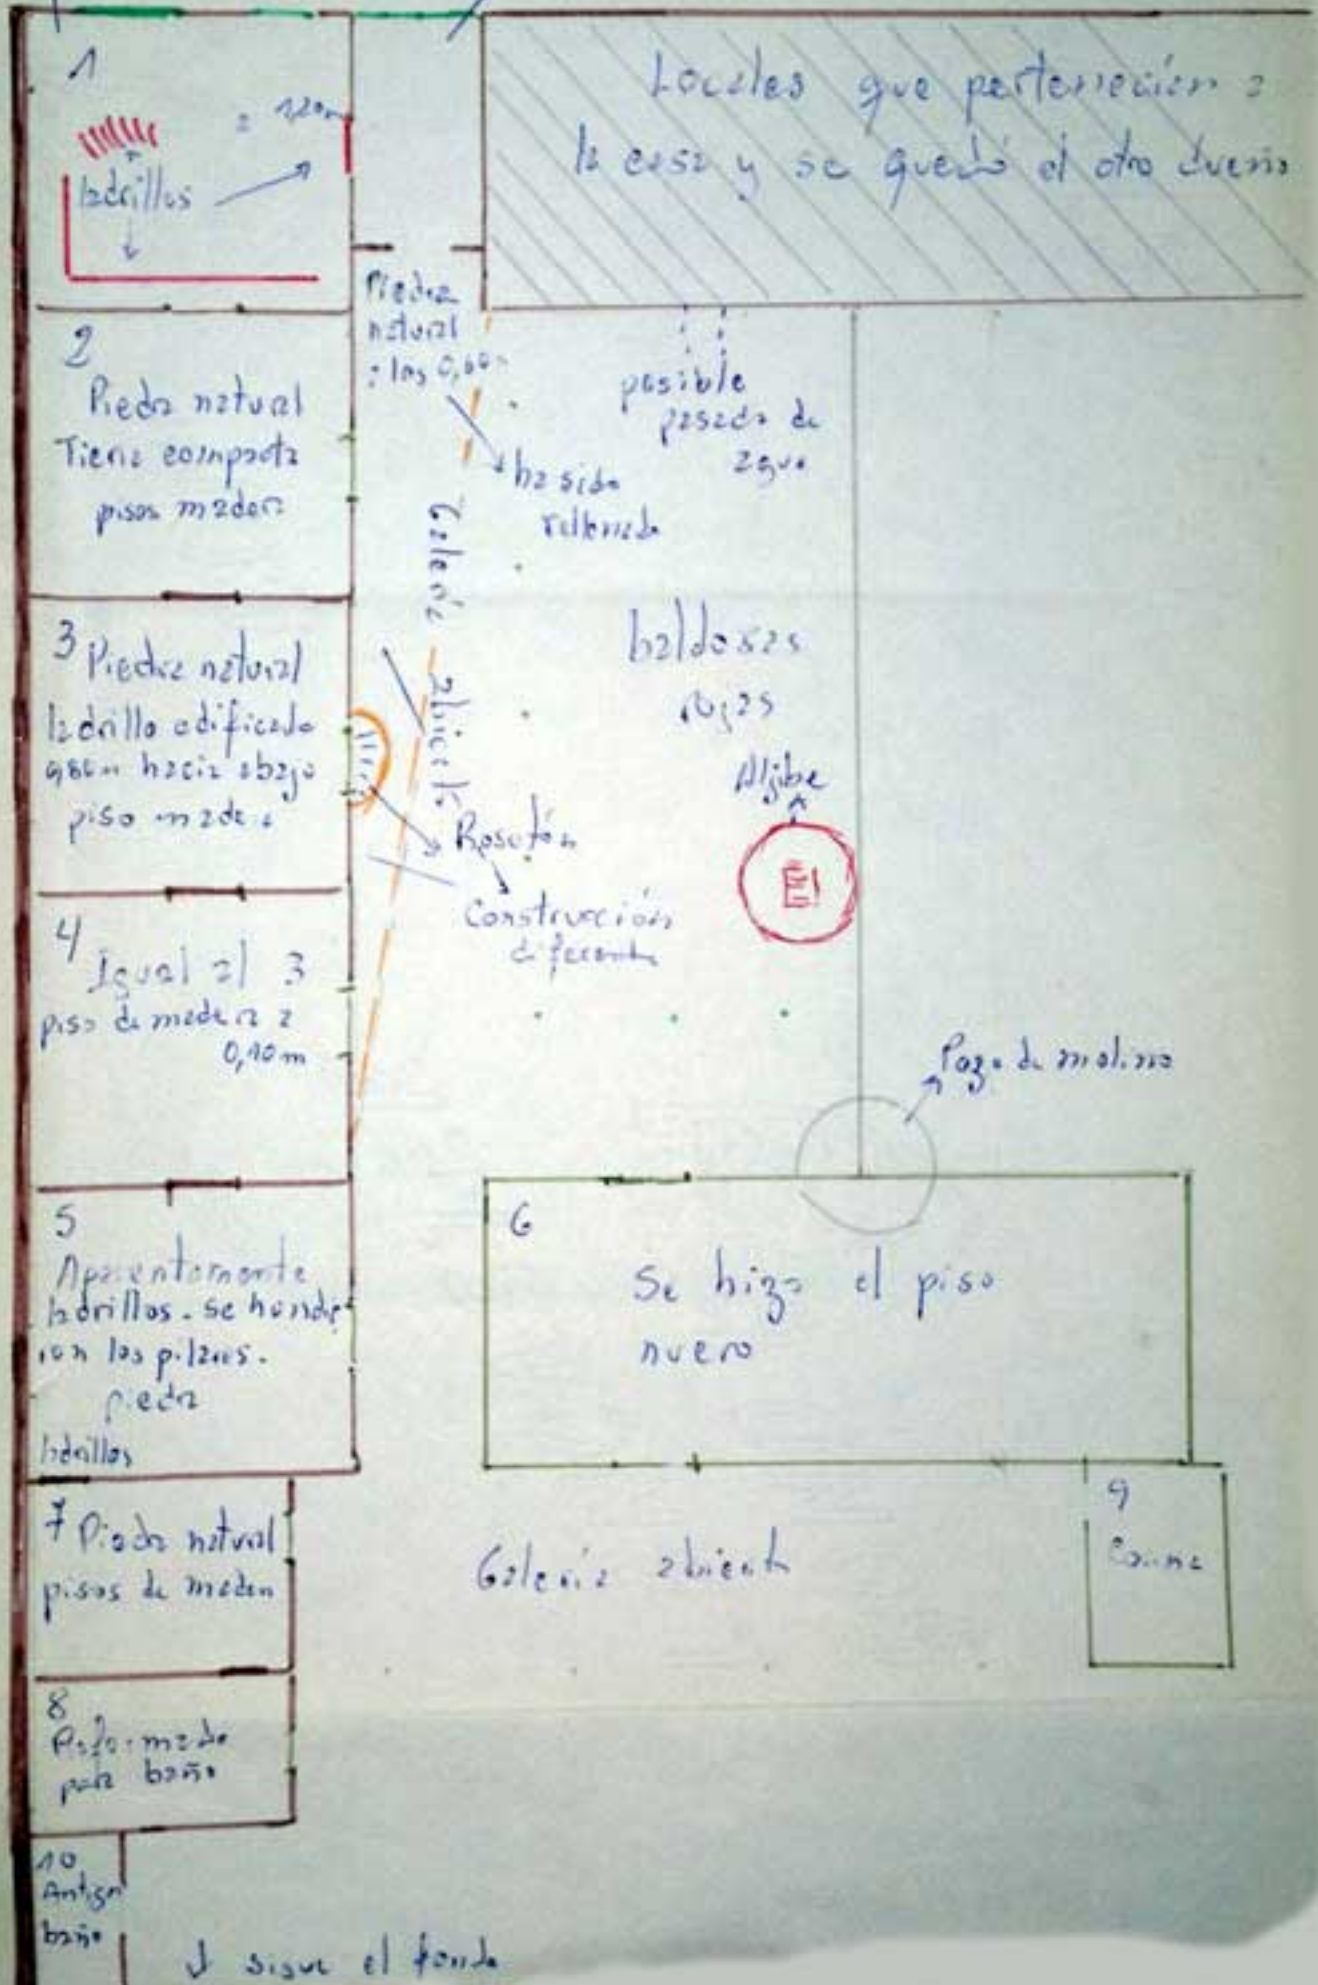 1
a 1,20m
ladrillos
Locales que pertenecían a
la casa y se quedó el otro dueño
2
Piedra natural
Tierra compacta
pisos madera
Piedra
natural
a los 0,60m
ha sido
rellenada
posible
pasada de
agua
Galería abierta
3 Piedra natural
ladrillo edificado
hacia abajo
piso madera
baldosas
rojas
Aljibe
Rosetón
Construcción
diferente
4
Igual al 3
piso de madera a
0,10m
Pozo de molino
5
Aparentemente
ladrillos. se hundie
ron los pilares.
piedra
ladrillos
6
Se hizo el piso
nuevo
7 Piedra natural
pisos de madera
Galería abierta
9
Cocina
8
Reformado
para baño
10
Antiguo
baño
↓ sigue el fondo